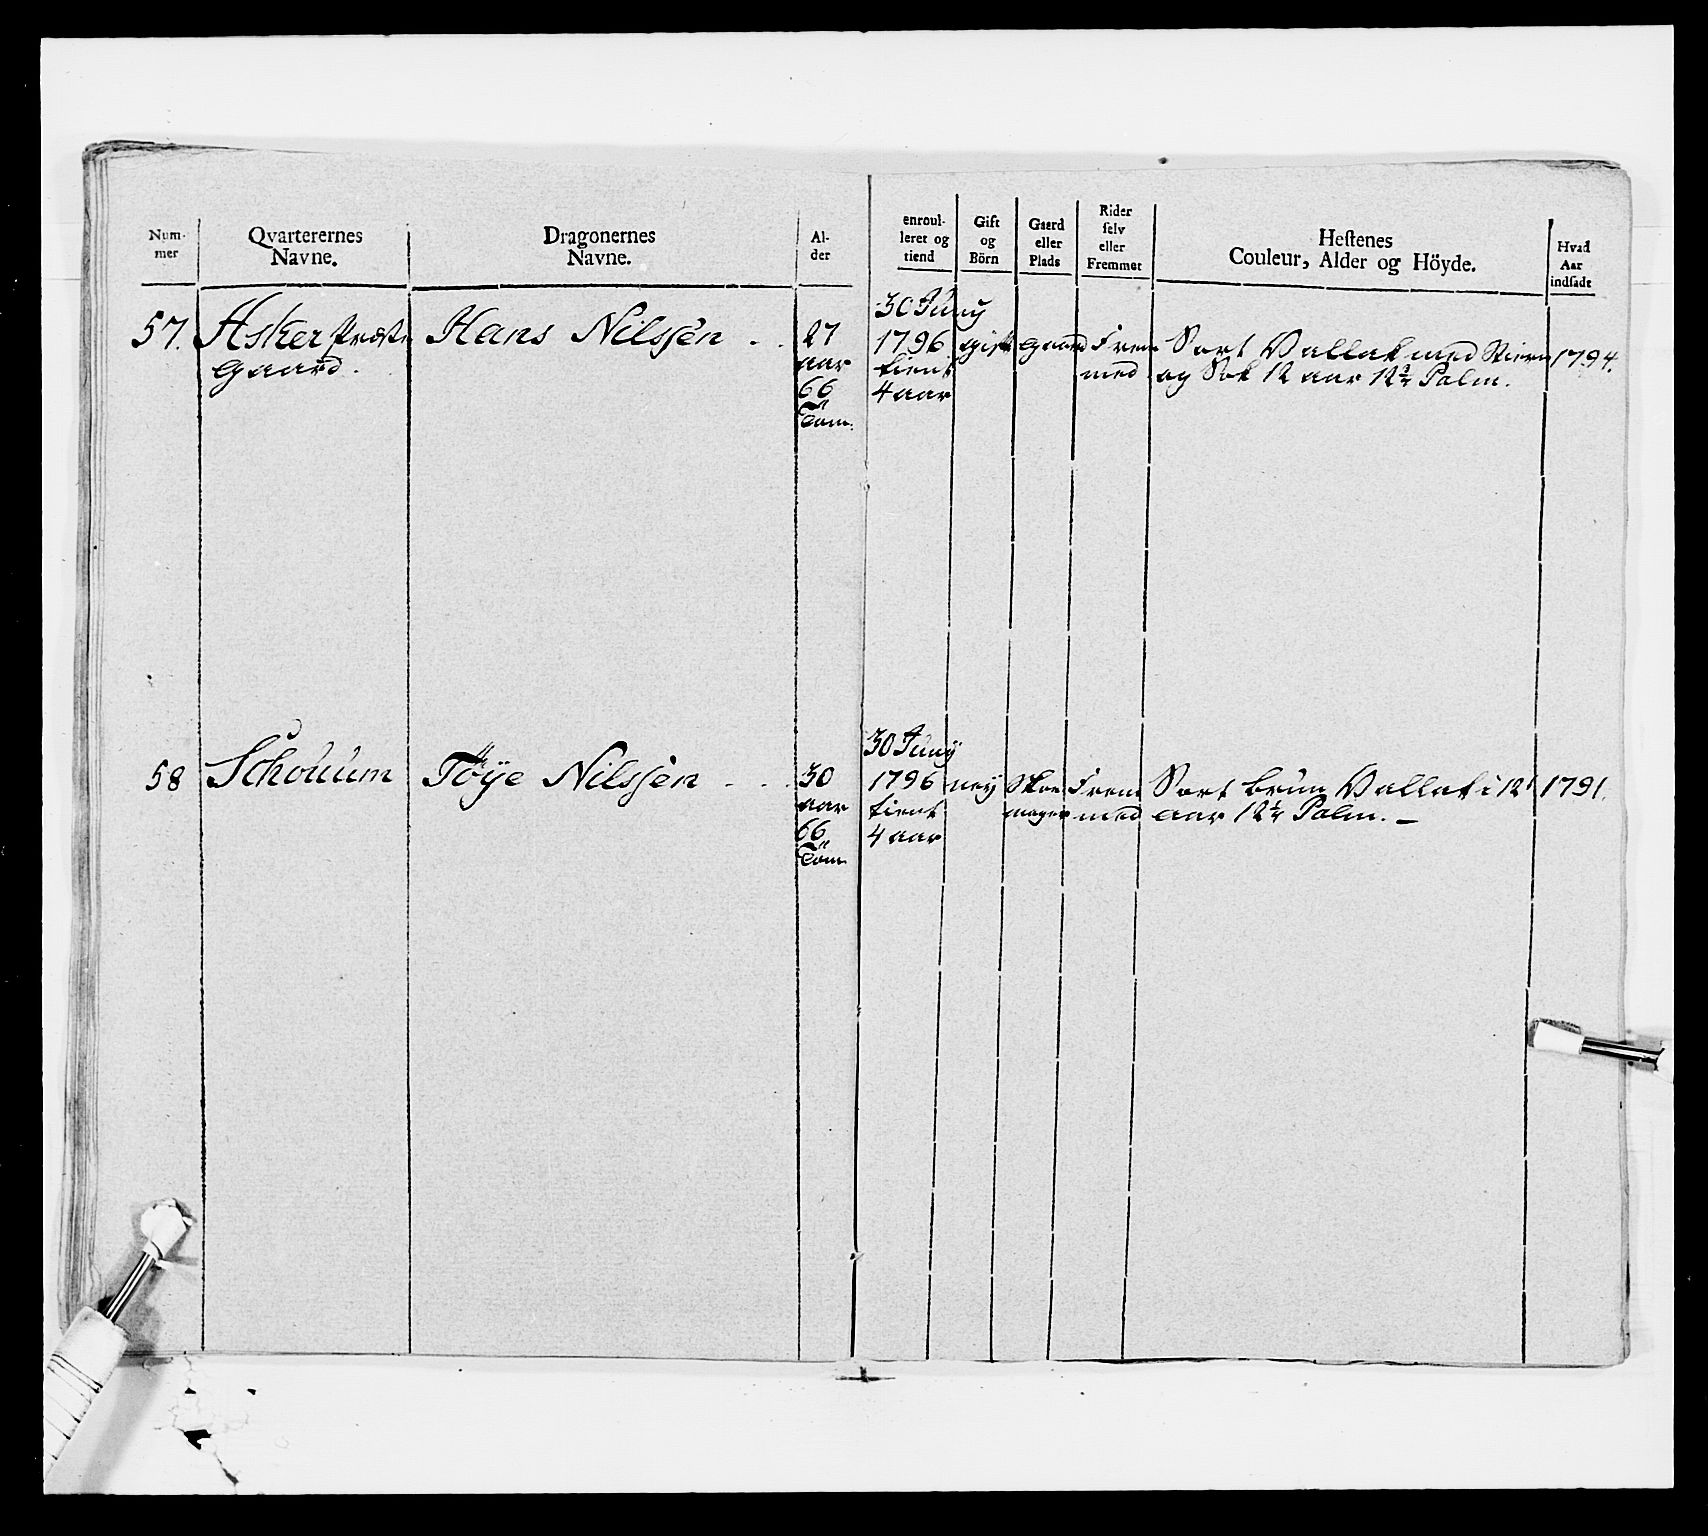 Num-
mer
Qvarterernes
Navne.
Dragonernes
Navne.
Al-
der
enroul-
leret og
tiend
Gift
og
Börn
Gaard
eller
Plads
Rider
selv
eller
Fremmet
Hestenes
Couleur, Alder og Höyde.
Hvad
Aar
indsadt
57.
Asker Præste
Gaard.
Hans Nilssen
27
aar
66
Tom.
30 Juny
1796
tient
4 aar
gift
gaard
Frem
med
Sort Vallak med Stiern
og Sok 12 aar 12 3/4 Palm.
1794.
58
Schouum
Töye Nilssen
30
aar
66
Tom
30 Juny
1796
tient
4 aar
ney
Skoe
mager
Frem
med
Sort brun Vallak i 12
aar 12 1/4 Palm.
1791.